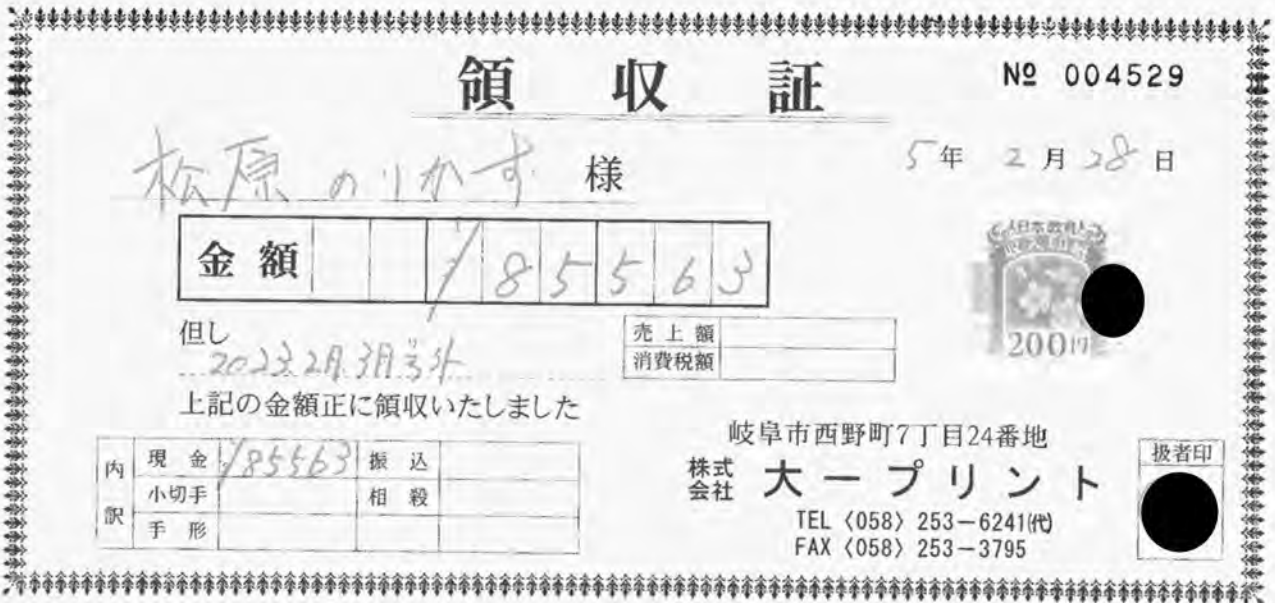 領収証
№ 004529
5年 2月 28日
松原のりかず 様
金額 ¥85563
但し
2023.2月.3月号外
売上額
消費税額
200円
上記の金額正に領収いたしました
内訳
現金 ¥85563 振込
小切手 相殺
手形
岐阜市西野町7丁目24番地
株式会社 大一プリント
TEL〈058〉253-6241㈹
FAX〈058〉253-3795
扱者印